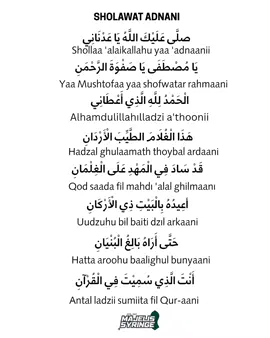 SHOLAWAT ADNANI
صلَّى عَلَيْكَ اللَّهُ يَا عَدْنَانِي
Shollaa 'alaikallahu yaa 'adnaanii
يَا مُصْطَفَى يَا صَفْوَةَ الرَّحْمَنِ
Yaa Mushtofaa yaa shofwatar rahmaani
الْحَمْدُ لِلَّهِ الَّذِي أَعْطَانِي
Alhamdulillahilladzi a'thoonii
هَذَا الْغُلَامَ الطَّيِّبَ الْأَرْدَانِ
Hadzal ghulaamath thoybal ardaani
قَدْ سَادَ فِي الْمَهْدِ عَلَى الْغِلْمَانِ
Qod saada fil mahdi 'alal ghilmaani
أُعِيذُهُ بِالْبَيْتِ ذِي الْأَرْكَانِ
Uudzuhu bil baiti dzil arkaani
حَتَّى أَرَاهُ بَالِغَ الْبُنْيَانِ
Hatta aroohu baalighul bunyaani
أَنْتَ الَّذِي سُمِيْتَ فِي الْقُرْآنِ
Antal ladzii sumiita fil Qur-aani
MAJELIS
SYRINGE